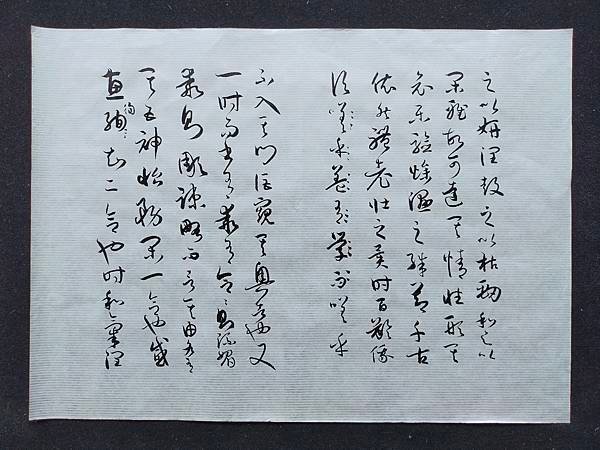 之以妍潤鼓之以枯勁和之以
閑雅故可達其情性形其
哀樂驗燥濕之殊節千古
依然體老壯之異時百齡俄
頃嗟乎蓋有學嗟乎
不入其門詎窺其奧者也又
一時而書有乖有合合則流媚
乖則彫疎略而言其由各有
其五神怡務閑一合也感
惠徇知二合也時和氣潤